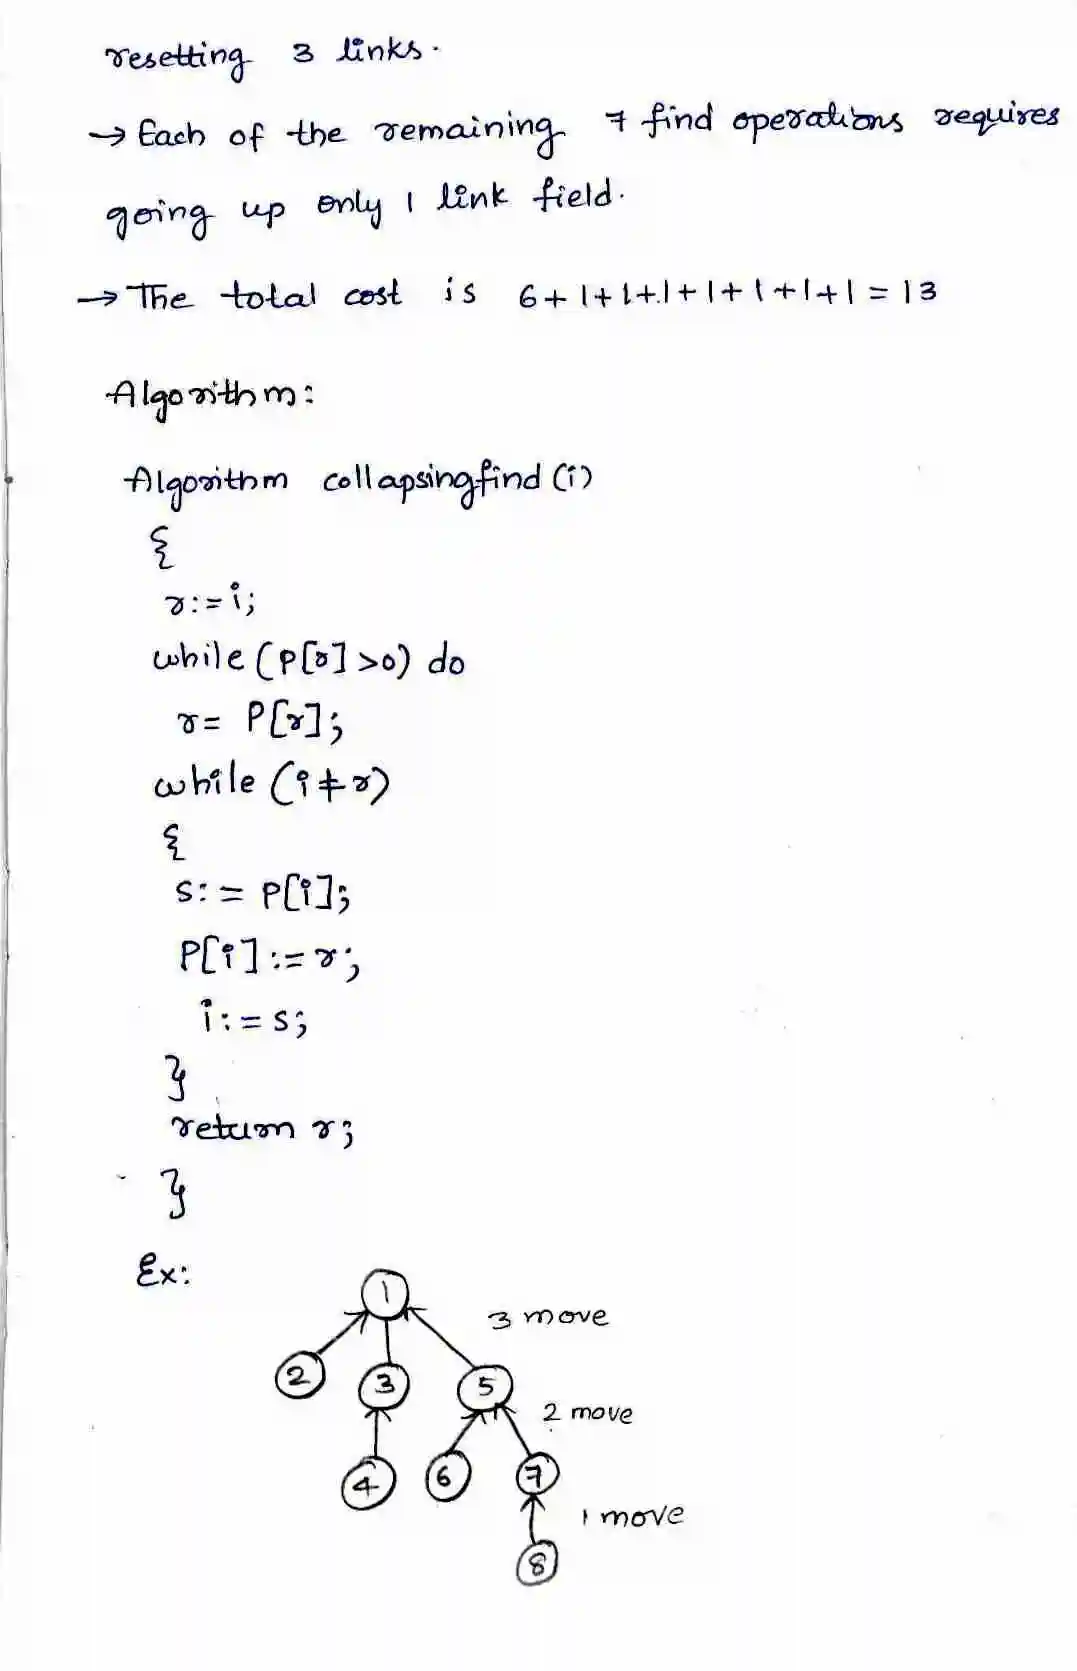 resetting 3 links.
→ Each of the remaining 7 find operations requires
going up only 1 link field.
→ The total cost is 6+1+1+1+1+1+1+1=13
Algorithm:
Algorithm collapsingfind(i)
{
r:=i;
while(P[r]>0) do
r= P[r];
while (i≠r)
{
s:= P[i];
P[i]:=r;
i:=s;
}
return r;
}
Ex:
1
3 move
2 3 5
2 move
4 6 7
1 move
8